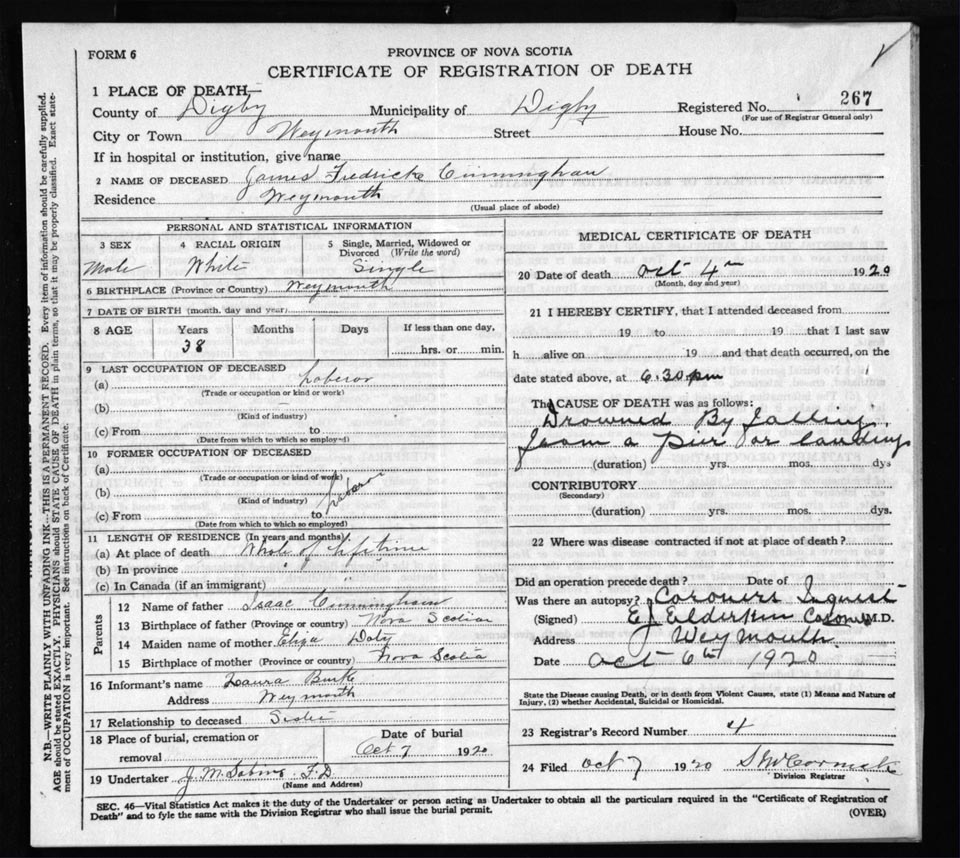 FORM 6
PROVINCE OF NOVA SCOTIA
CERTIFICATE OF REGISTRATION OF DEATH
1 PLACE OF DEATH,—
County of Digby Municipality of Digby Registered No. 267
(For use of Registrar General only)
City or Town Weymouth Street House No.
If in hospital or institution, give name
2 NAME OF DECEASED James Fredrick Cunningham
Residence Weymouth
(Usual place of abode)
PERSONAL AND STATISTICAL INFORMATION
3 SEX 4 RACIAL ORIGIN 5 Single, Married, Widowed or Divorced (Write the word)
Male White Single
6 BIRTHPLACE (Province or Country) Weymouth
7 DATE OF BIRTH (month, day and year)
8 AGE Years Months Days If less than one day,
38 hrs. or min.
9 LAST OCCUPATION OF DECEASED
(a) Laberor
(Trade or occupation or kind or work)
(b)
(Kind of industry)
(c) From to
(Date from which to which so employed)
10 FORMER OCCUPATION OF DECEASED
(a)
(Trade or occupation or kind of work)
(b)
(Kind of industry)
(c) From to
(Date from which to which so employed)
11 LENGTH OF RESIDENCE (In years and months).
(a) At place of death Whole of Lifetime
(b) In province "
(c) In Canada (if an immigrant) "
Parents
12 Name of father Isaac Cunningham
13 Birthplace of father (Province or country) Nova Scotia
14 Maiden name of mother Eliza Doty
15 Birthplace of mother (Province or country) Nova Scotia
16 Informant's name Laura Burke
Address Weymouth
17 Relationship to deceased Sister
18 Place of burial, cremation or removal Date of burial
Oct 7 1920
19 Undertaker J. M. F.D.
(Name and Address)
MEDICAL CERTIFICATE OF DEATH
20 Date of death Oct 4th 1920
(Month, day and year)
21 I HEREBY CERTIFY, that I attended deceased from
19 to 19 that I last saw
h alive on 19 and that death occurred, on the
date stated above, at 6.30 pm
The CAUSE OF DEATH was as follows:
Drowned By falling
from a pier or landings
(duration) yrs. mos. dys
CONTRIBUTORY
(Secondary)
(duration) yrs. mos. dys.
22 Where was disease contracted if not at place of death?
Did an operation precede death? Date of
Was there an autopsy? Coroners Inquest
(Signed) E J Elderkin Coroner M.D.
Address Weymouth
Date Oct 6th 1920
State the Disease causing Death, or in death from Violent Causes, state (1) Means and Nature of
Injury, (2) whether Accidental, Suicidal or Homicidal.
23 Registrar's Record Number 4
24 Filed Oct 7 1920 S McCormick
Division Registrar
SEC. 46—Vital Statistics Act makes it the duty of the Undertaker or person acting as Undertaker to obtain all the particulars required in the "Certificate of Registration of
Death" and to fyle the same with the Division Registrar who shall issue the burial permit. (OVER)
N.B.—WRITE PLAINLY WITH UNFADING INK—THIS IS A PERMANENT RECORD. Every item of information should be carefully supplied.
AGE should be stated EXACTLY. PHYSICIANS should STATE CAUSE OF DEATH in plain terms, so that it may be properly classified. Exact state-
ment of OCCUPATION is very important. See instructions on back of Certificate.